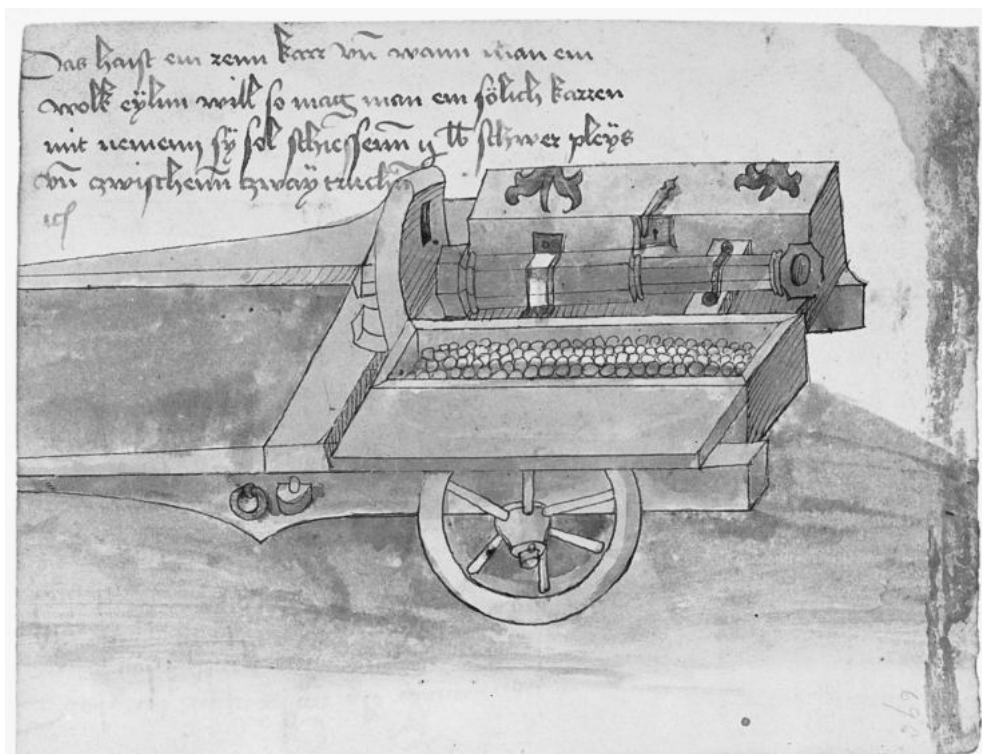 Das haist ein renn karr vn̄ wann man ein
wolk will so mag man ein sölich karren
mit nemenn sy sol schiessenn ij lb schwer pleys
vn̄ czwischenn czway